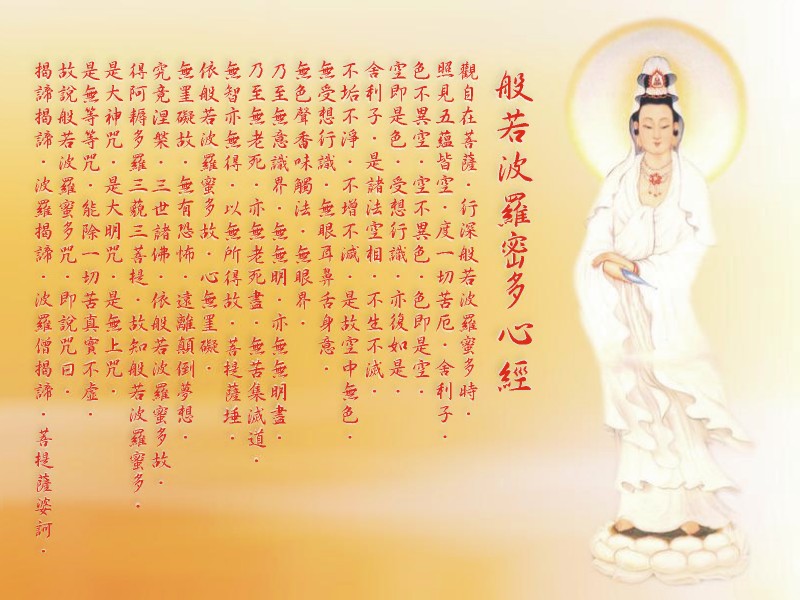 般若波羅密多心經
觀自在菩薩．行深般若波羅蜜多時．
照見五蘊皆空．度一切苦厄．舍利子．
色不異空．空不異色．色即是空．
空即是色．受想行識．亦後如是．
舍利子．是諸法空相．不生不滅．
不垢不淨．不增不減．是故空中無色．
無受想行識．無眼耳鼻舌身意．
無色聲香味觸法．無眼界．
乃至無意識界．無無明．亦無無明盡．
乃至無老死．亦無老死盡．無苦集滅道．
無智亦無得．以無所得故．菩提薩埵．
依般若波羅蜜多故．心無罣礙．
無罣礙故．無有恐怖．遠離顛倒夢想．
究竟涅槃．三世諸佛．依般若波羅蜜多故．
得阿耨多羅三藐三菩提．故知般若波羅蜜多．
是大神咒．是大明咒．是無上咒．
是無等等咒．能除一切苦真實不虛．
故說般若波羅蜜多咒．即說咒曰．
揭諦揭諦．波羅揭諦．波羅僧揭諦．菩提薩婆訶．